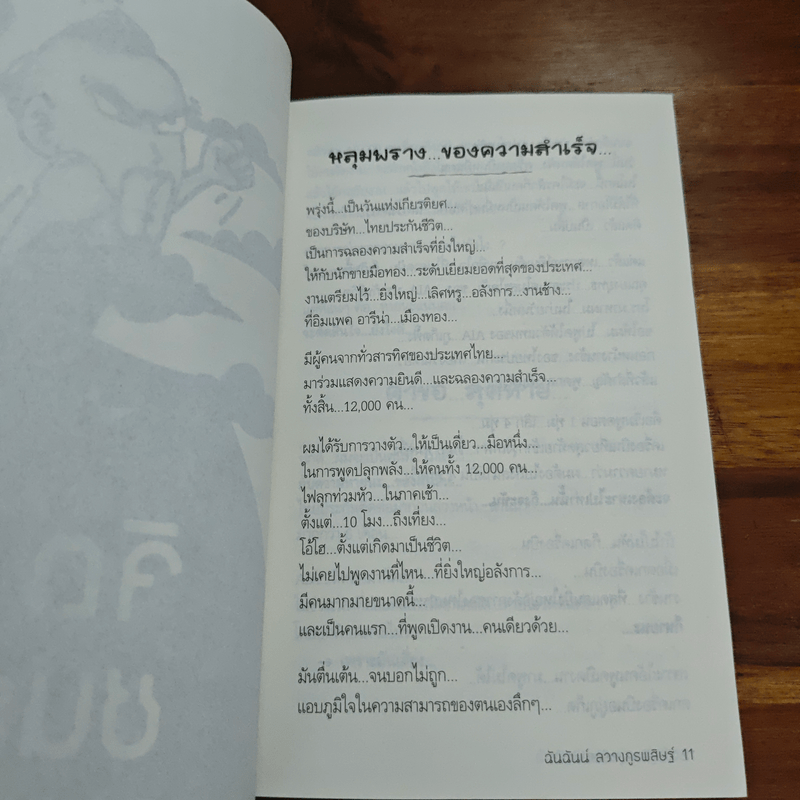 หลุมพราง...ของความสำเร็จ...
พรุ่งนี้...เป็นวันแห่งเกียรติยศ...
ของบริษัท...ไทยประกันชีวิต...
เป็นการฉลองความสำเร็จที่ยิ่งใหญ่...
ให้กับนักขายมือทอง...ระดับเยี่ยมยอดที่สุดของประเทศ...
งานเตรียมไว้...ยิ่งใหญ่...เลิศหรู...อลังการ...งานช้าง...
ที่อิมแพค อารีน่า...เมืองทอง...
มีผู้คนจากทั่วสารทิศของประเทศไทย...
มาร่วมแสดงความยินดี...และฉลองความสำเร็จ...
ทั้งสิ้น...12,000 คน...
ผมได้รับการวางตัว...ให้เป็นเดี่ยว...มือหนึ่ง...
ในการพูดปลุกพลัง...ให้คนทั้ง 12,000 คน...
ไฟลุกท่วมหัว...ในภาคเช้า...
ตั้งแต่...10 โมง...ถึงเที่ยง...
โอ้โฮ...ตั้งแต่เกิดมาเป็นชีวิต...
ไม่เคยไปพูดงานที่ไหน...ที่ยิ่งใหญ่อลังการ...
มีคนมากมายขนาดนี้...
และเป็นคนแรก...ที่พูดเปิดงาน...คนเดียวด้วย...
มันตื่นเต้น...จนบอกไม่ถูก...
แอบภูมิใจในความสามารถของตนเองลึกๆ...
ฉันฉันน์ ลวางกูรพสิษฐ์ 11